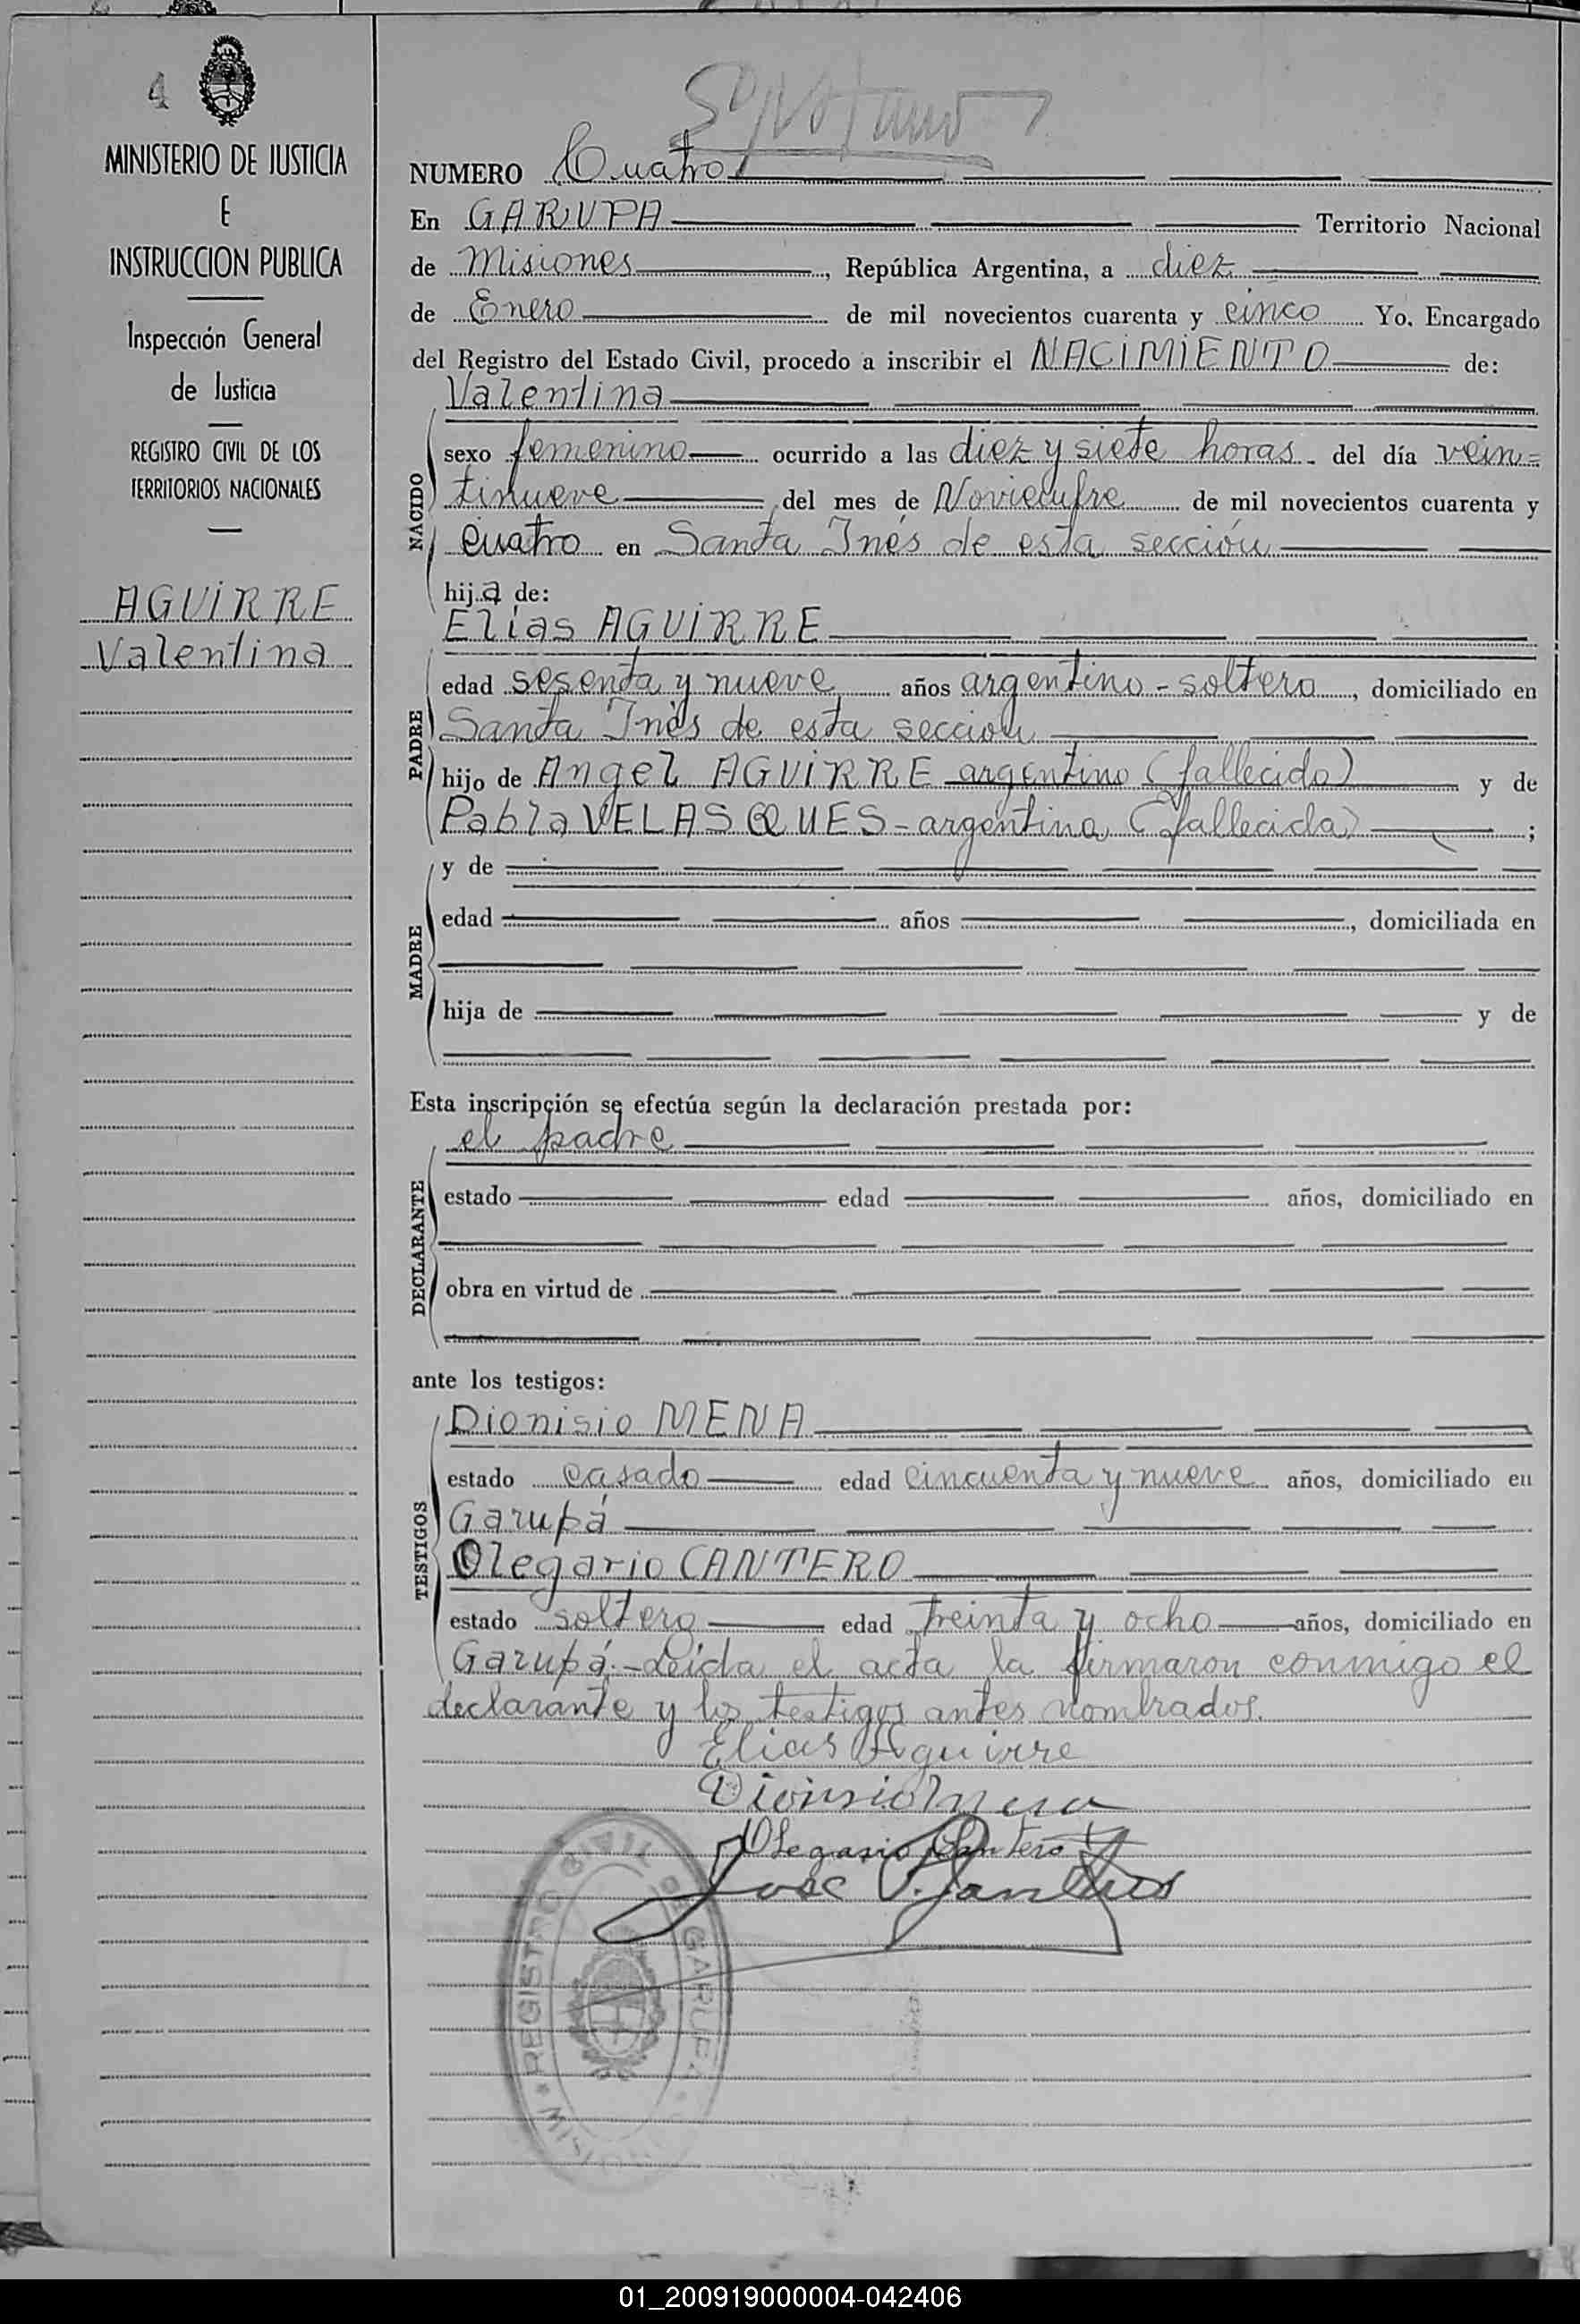 4
MINISTERIO DE JUSTICIA
E
INSTRUCCION PUBLICA
Inspección General
de Justicia
REGISTRO CIVIL DE LOS
TERRITORIOS NACIONALES
AGUIRRE
Valentina
NUMERO Cuatro
En GARUPA Territorio Nacional
de Misiones, República Argentina, a diez
de Enero de mil novecientos cuarenta y cinco Yo. Encargado
del Registro del Estado Civil, procedo a inscribir el NACIMIENTO de:
Valentina
NACIDO
sexo femenino ocurrido a las diez y siete horas del día vein=
tinueve del mes de Noviembre de mil novecientos cuarenta y
cuatro en Santa Inés de esta sección
hija de:
Elías AGUIRRE
PADRE
edad sesenta y nueve años argentino - soltero, domiciliado en
Santa Inés de esta sección
hijo de Angel AGUIRRE argentino (fallecido) y de
Pabla VELASQUES - argentina (fallecida) ;
MADRE
y de
edad años , domiciliada en
hija de y de
Esta inscripción se efectúa según la declaración prestada por:
el padre
DECLARANTE
estado edad años, domiciliado en
obra en virtud de
ante los testigos:
TESTIGOS
Dionisio MENA
estado casado edad cincuenta y nueve años, domiciliado en
Garupá
Olegario CANTERO
estado soltero edad treinta y ocho años, domiciliado en
Garupá.- Leída el acta la firmaron conmigo el
declarante y los testigos antes nombrados.
Elias Aguirre
Dionisio Mena
Olegario Cantero
Jose
REGISTRO CIVIL DE GARUPA
01_200919000004-042406